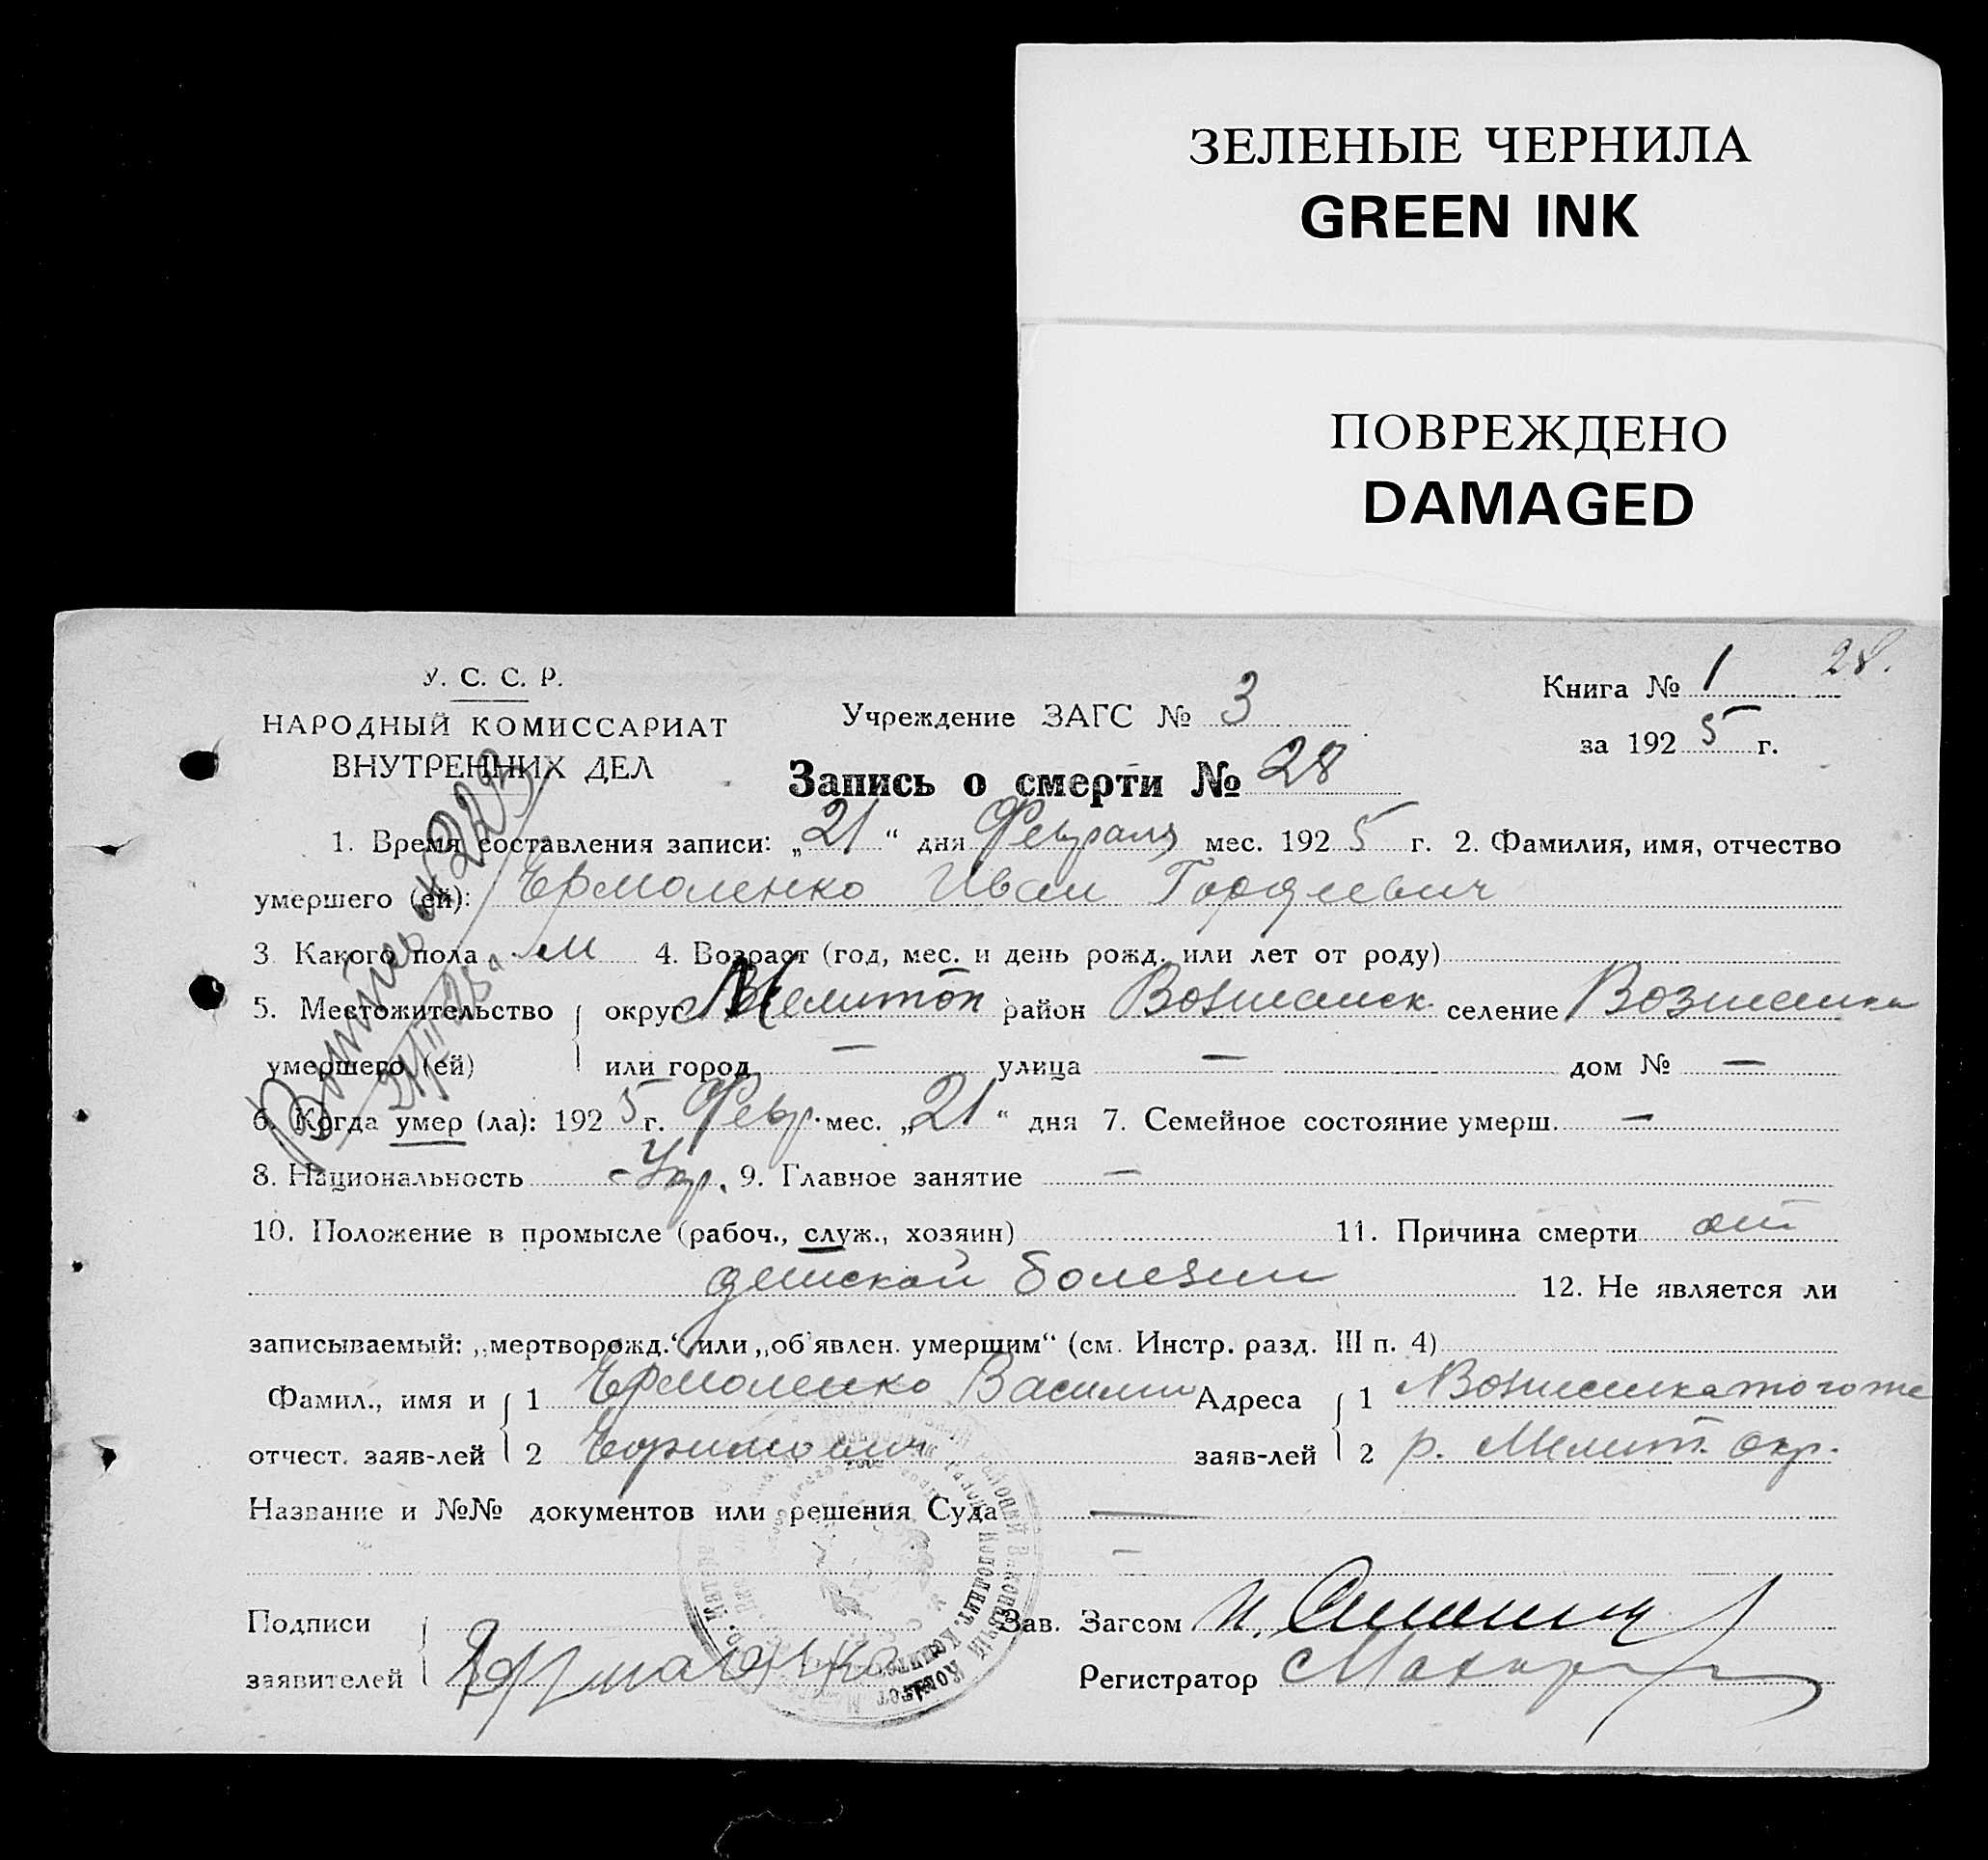 ЗЕЛЕНЫЕ ЧЕРНИЛА
GREEN INK
ПОВРЕЖДЕНО
DAMAGED
28.
У. С. С. Р.
НАРОДНЫЙ КОМИССАРИАТ
ВНУТРЕННИХ ДЕЛ
Учреждение ЗАГС № 3
Книга № 1
за 1925 г.
Запись о смерти № 28
1. Время составления записи: „21“ дня Февраля мес. 1925 г. 2. Фамилия, имя, отчество
умершего (ей): Ермоленко Иван Гордеевич
3 Какого пола м 4. Возраст (год, мес. и день рожд. или лет от роду)
5. Местожительство округ Мелитоп район Вознесенск селение Вознесенка
умершего (ей) или город — улица — дом № —
6. Когда умер (ла): 1925 г. Февр. мес. „21“ дня 7. Семейное состояние умерш. —
8. Национальность -Укр. 9. Главное занятие —
10. Положение в промысле (рабоч., служ., хозяин) 11. Причина смерти от
детской болезни 12. Не является ли
записываемый: „мертворожд.“ или „об'явлен. умершим“ (см. Инстр. разд. III п. 4)
Фамил., имя и 1 Ермоленко Василий Адреса 1 Вознесенка того же
отчест. заяв-лей 2 заяв-лей 2 р. Мелит. окр.
Название и №№ документов или решения Суда —
—
Подписи Зав. Загсом И.
заявителей Регистратор